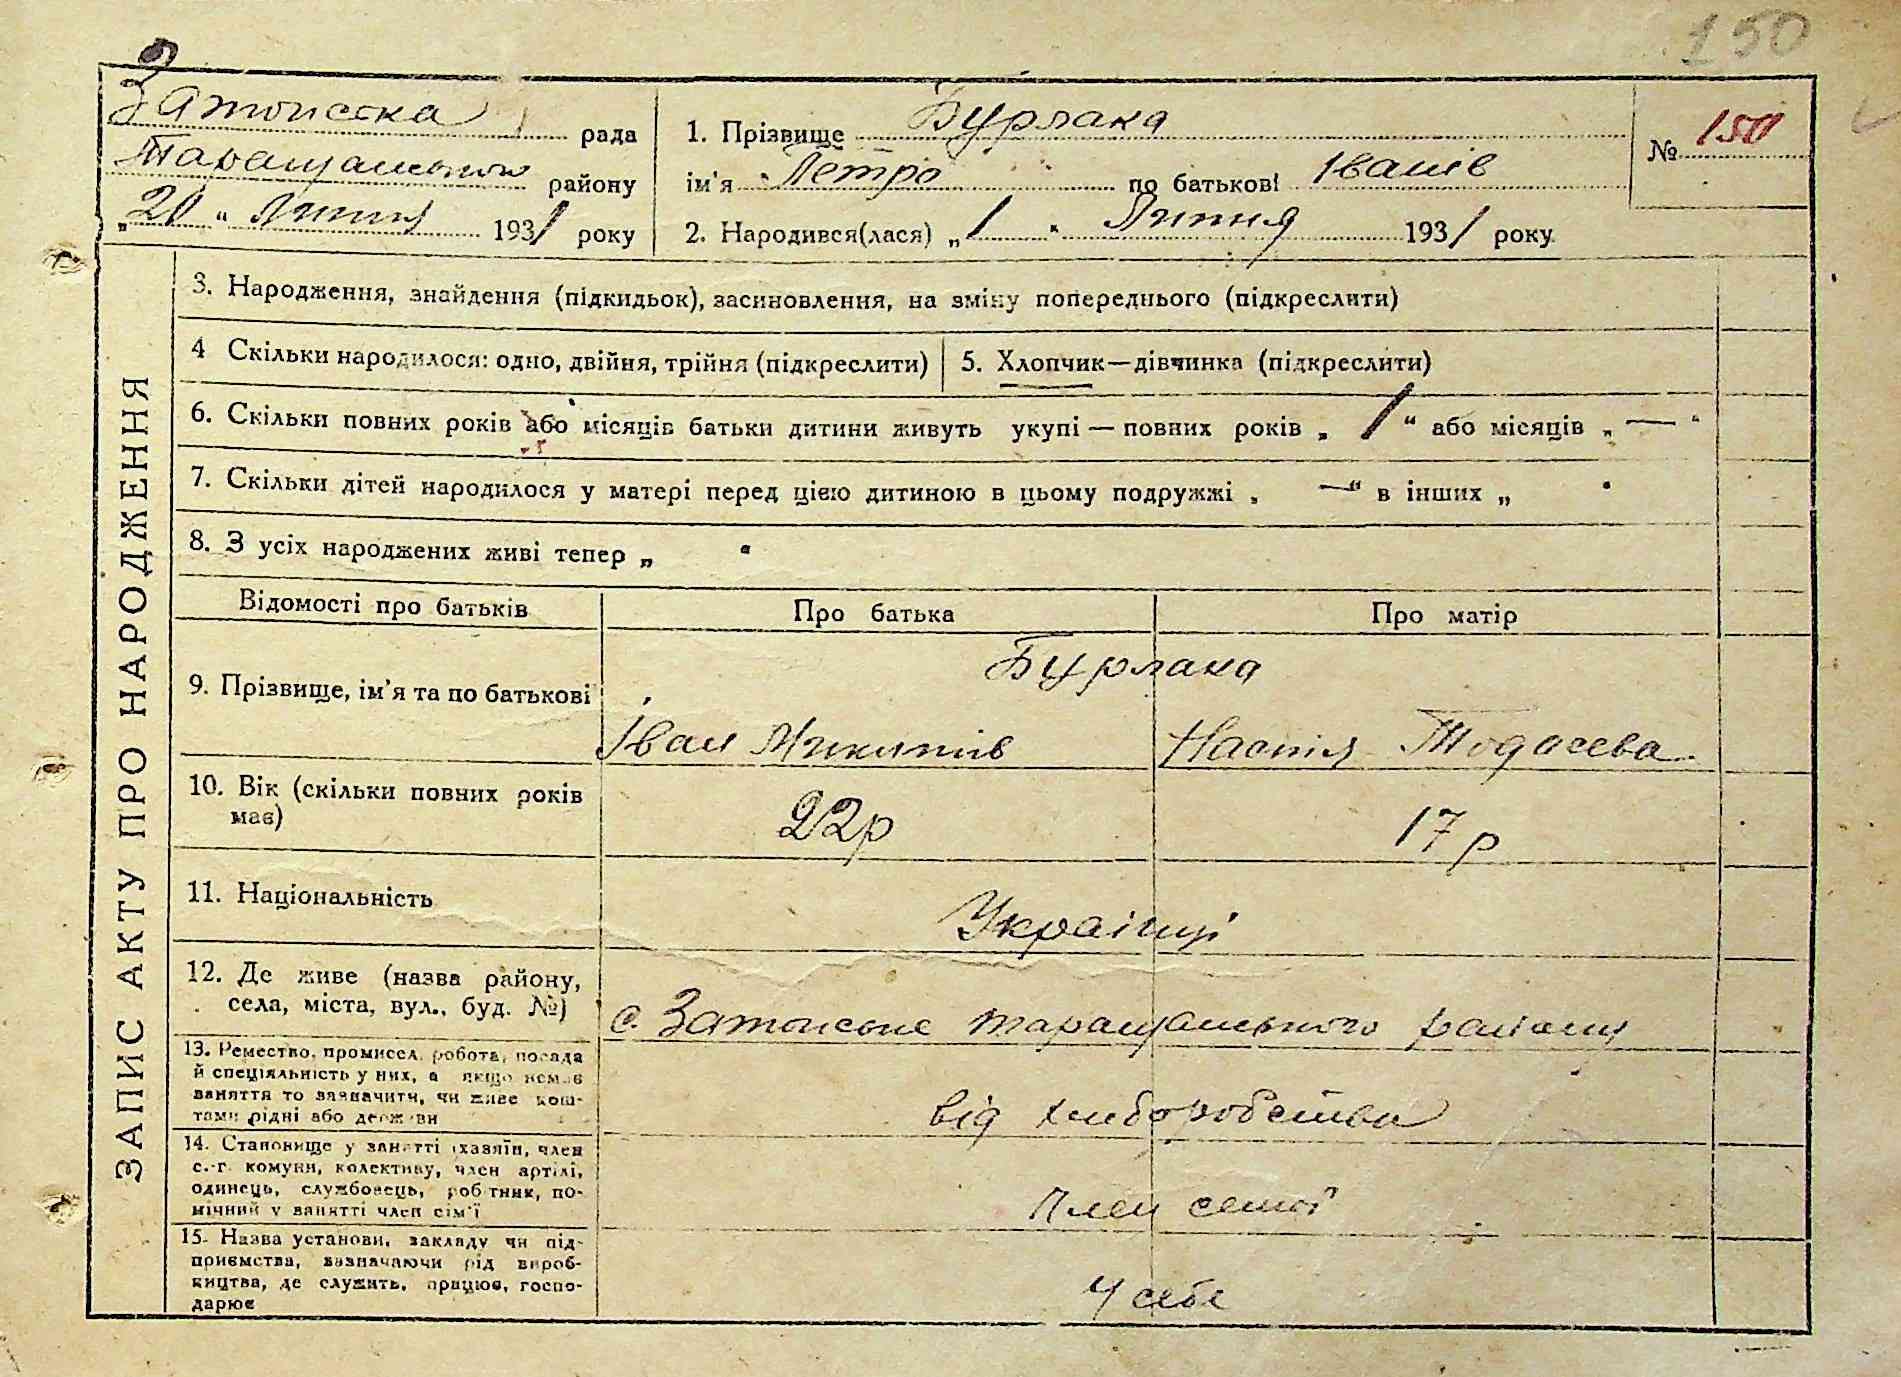 150
Затонська рада
Таращанського району
„20" Липня 1931 року
1. Прізвище Бурлака
ім'я Петро по батькові Іванів
2. Народився(лася) „1" Липня 1931 року
№ 150
ЗАПИС АКТУ ПРО НАРОДЖЕННЯ
3. Народження, знайдення (підкидьок), засиновлення, на зміну попереднього (підкреслити)
4 Скільки народилося: одно, двійня, трійня (підкреслити)
5. Хлопчик—дівчинка (підкреслити)
6. Скільки повних років або місяців батьки дитини живуть укупі — повних років „ 1 " або місяців „ — "
7. Скільки дітей народилося у матері перед цією дитиною в цьому подружжі „ — " в інших „ "
8. З усіх народжених живі тепер „ "
Відомості про батьків Про батька Про матір
Бурлака
9. Прізвище, ім'я та по батькові
Іван Микитів Настія Тодосева
10. Вік (скільки повних років
має)
22р 17р
11. Національність
Українці
12. Де живе (назва району,
села, міста, вул., буд. №)
с. Затонське таращанського району
13. Ремество, промисел, робота, посада
й спеціяльність у них, а якщо немає
заняття то зазначити, чи живе кош-
тами рідні або держави
від хліборобства
14. Становище у занятті (хазяїн, член
с.-г. комуни, колективу, член артілі,
одинець, службовець, робітник, по-
мічний у занятті член сім'ї
Член семої
15. Назва установи, закладу чи під-
приємства, зазначаючи рід вироб-
ництва, де служить, працює, госпо-
дарює
У себе